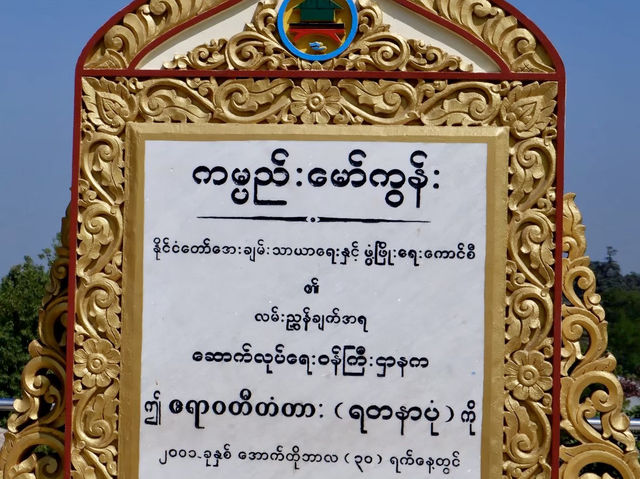 ကမ္ပည်းမော်ကွန်း
နိုင်ငံတော်အေးချမ်းသာယာရေးနှင့် ဖွံ့ဖြိုးရေးကောင်စီ
၏
လမ်းညွှန်ချက်အရ
ဆောက်လုပ်ရေးဝန်ကြီးဌာနက
ဤ ဧရာဝတီတံတား (ရတနာပုံ) ကို
၂၀၀၁ ခုနှစ် အောက်တိုဘာလ (၃၀) ရက်နေ့တွင်